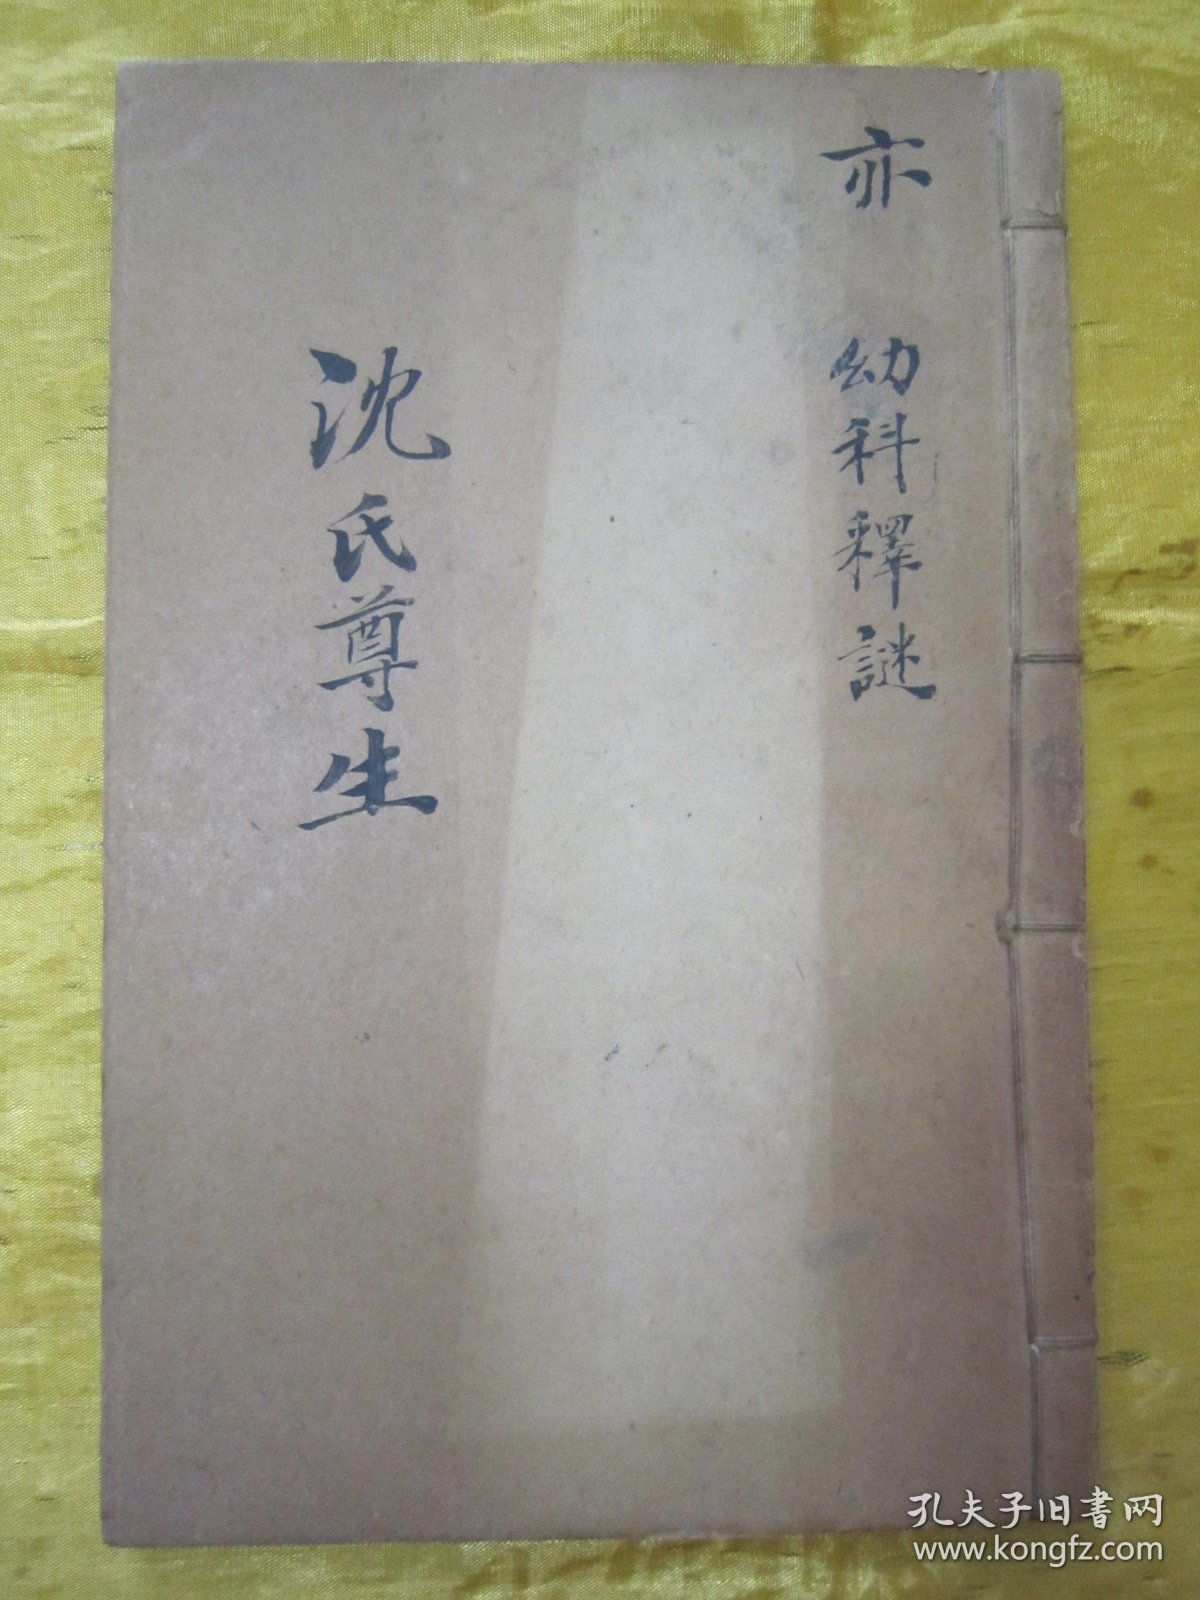 亦
幼科釋謎
沈氏尊生
孔夫子旧書网
www.kongfz.com